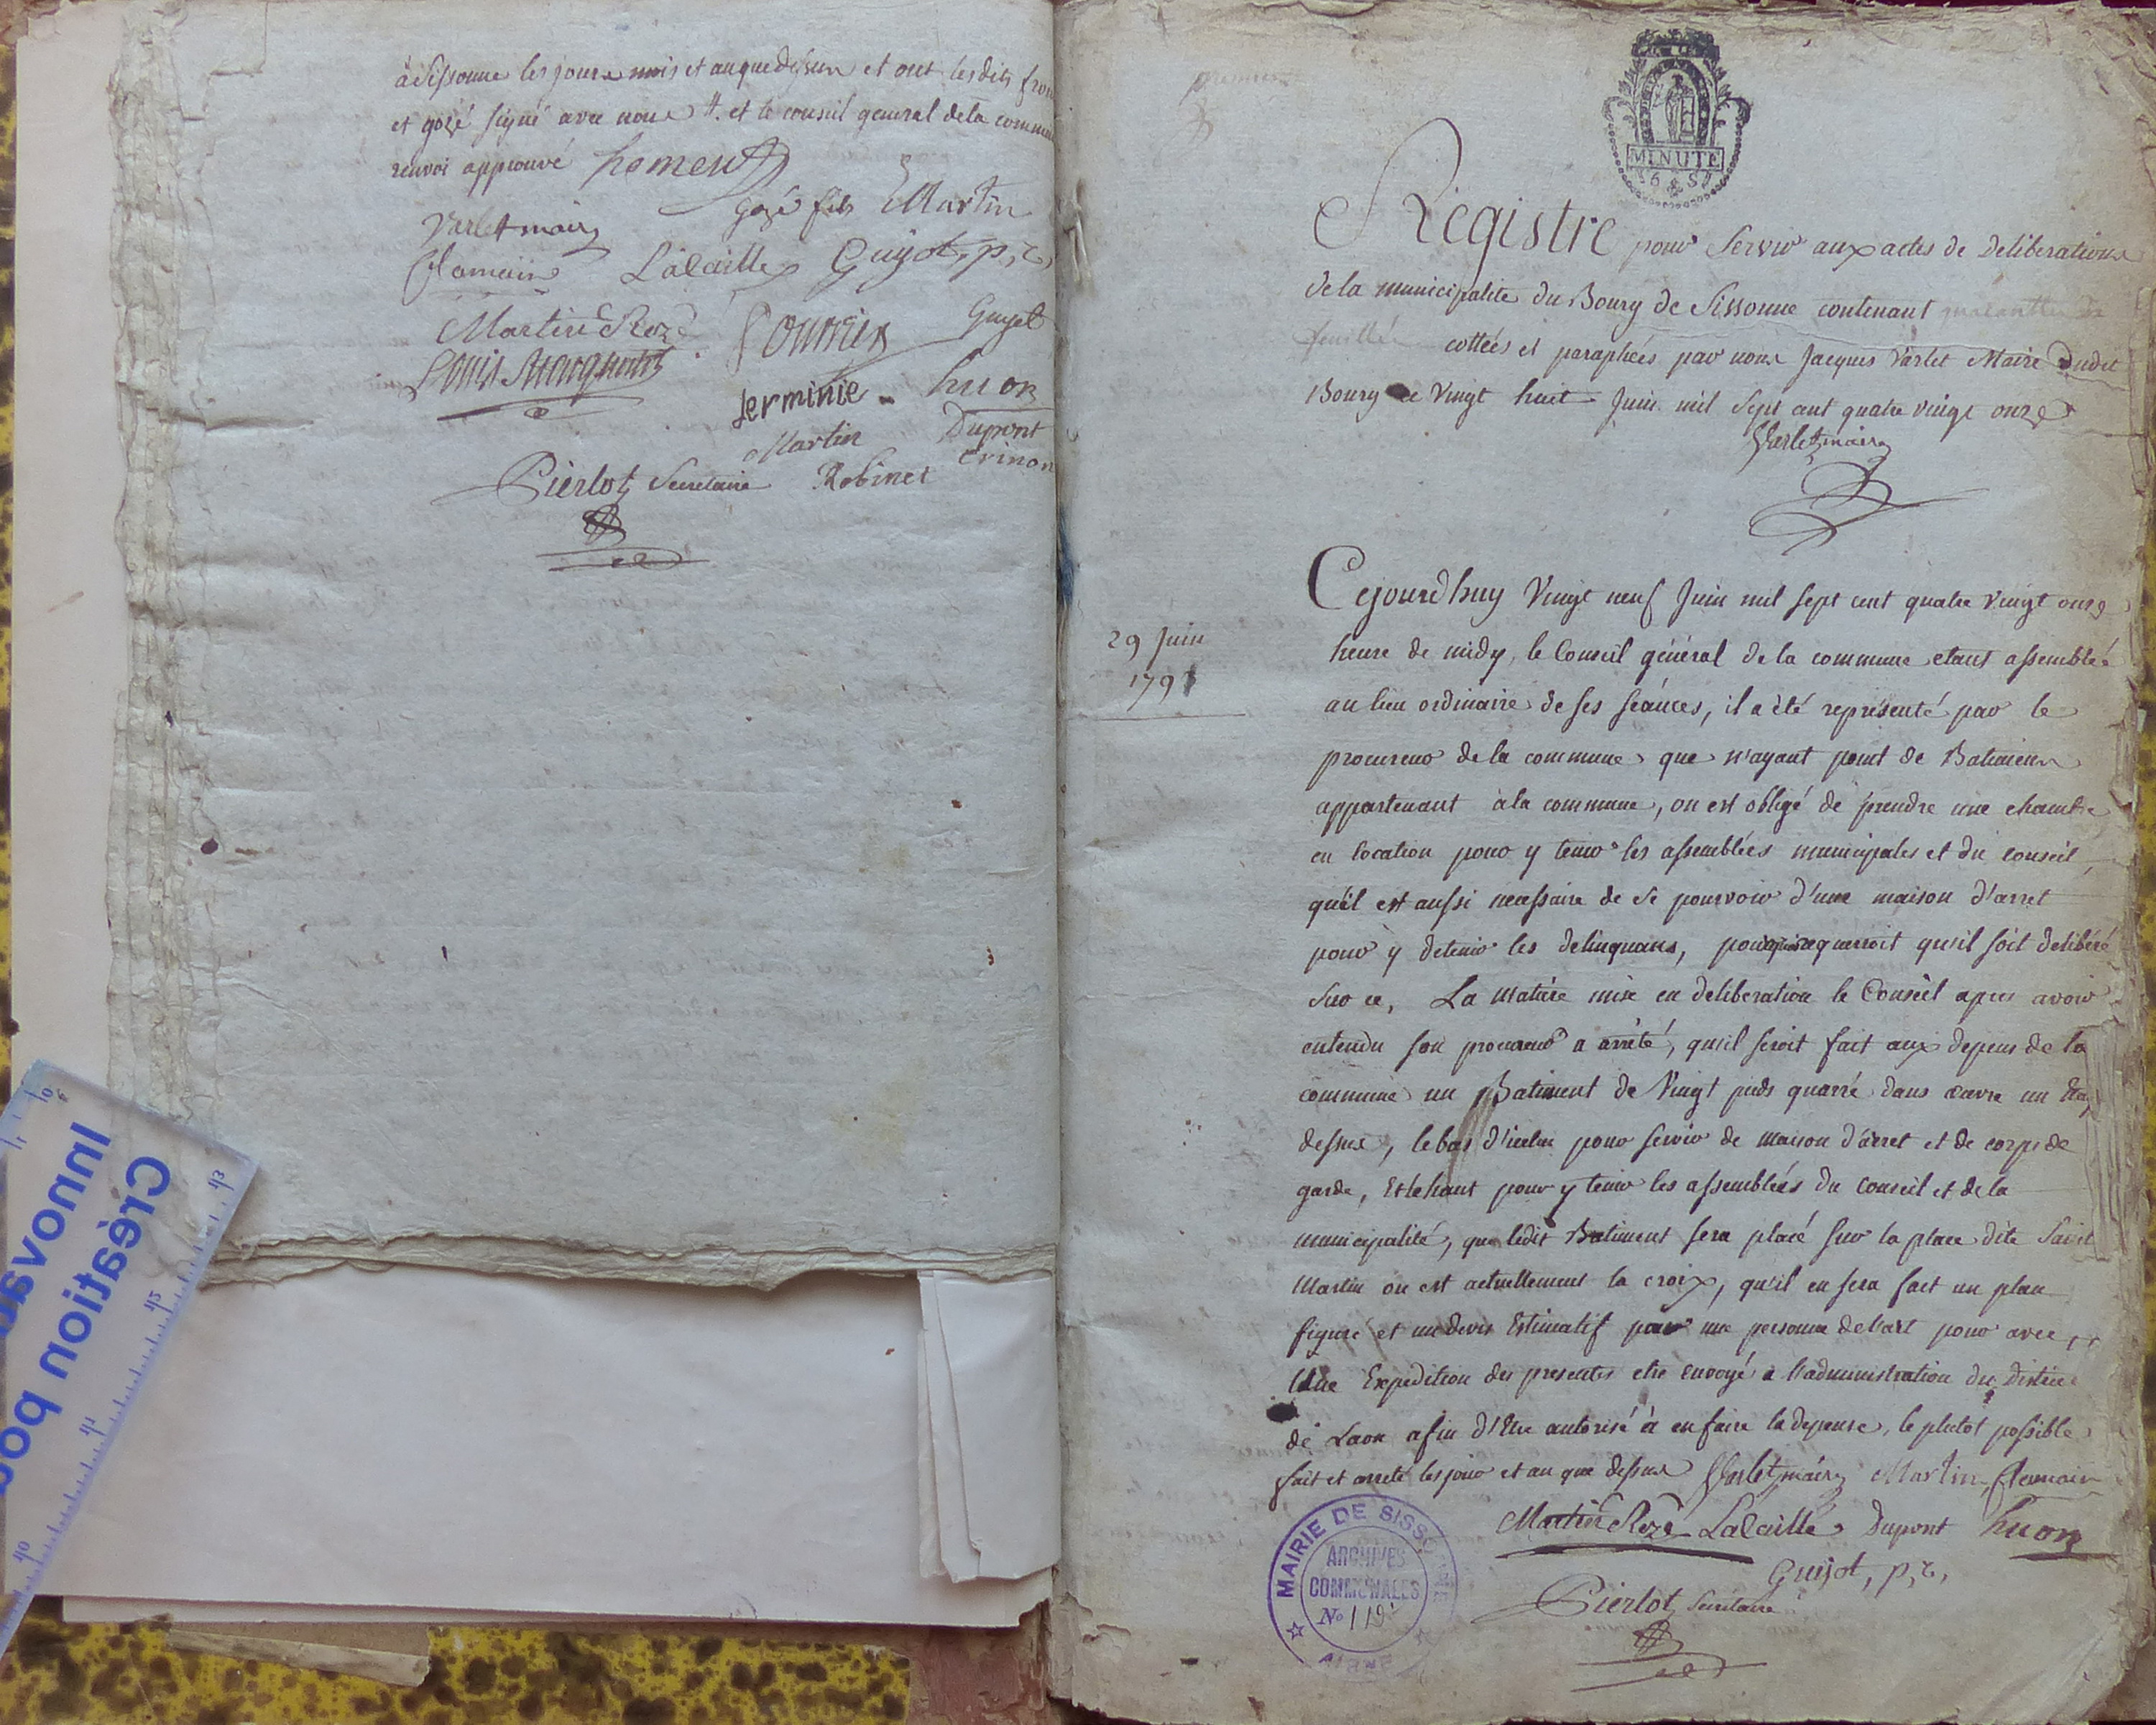 à Sissonne les jour mois et an que dessus et ont lesdits
et gozé signé avec nous #. et le conseil general de la commu
renvoi approuvé homent
gozé fils Martin
Varlet maire
flamain Lalaille Guyot, p, c,
Martin Rozé fournier Guyot
Louis
Jerminie huon
Martin Dupont
Crinon
Pierlot Secretaire Robinet
premier
MINUTE
6 S
Registre pour servir aux actes de deliberations
de la municipalité du Bourg de Sissonne contenant
feuillés cottées et paraphées par nous Jacques Varlet Maire dudit
Bourg ce vingt huit Juin mil sept cent quatre vingt onze
Varlet maire
29 Juin
1791
Cejourd'huy Vingt neuf Juin mil sept cent quatre vingt onze
heure de midy, le Conseil général de la commune etant assemblé
au lieu ordinaire de ses séances, il a été représenté par le
procureur de la commune que n'ayant point de Batimens
appartenant à la commune, on est obligé de prendre une chambre
en location pour y tenir les assemblées municipales et du conseil,
qu'il est aussi necessaire de se pourvoir d'une maison d'arret
pour y detenir les delinquans, pourquoi requerroit qu'il soit deliberé
sur ce, La matière mise en deliberation le Conseil apres avoir
entendu son procureur a arrêté, qu'il seroit fait aux depens de la
commune un Batiment de Vingt pieds quarré dans œuvre un
dessus, le bas d'icelui pour servir de maison d'arret et de corps de
garde, et le haut pour y tenir les assemblées du Conseil et de la
municipalité, que ledit Batiment sera placé sur la place dite Saint
Martin où est actuellement la croix, qu'il en sera fait un plan
figuré et un devis Estimatif par une personne de l'art pour avec
Une Expedition des presentes etre envoyé à l'administration du District
de Laon afin d'Etre autorisé à en faire la depense, le plutot possible
fait et arreté les jour et an que dessus Varlet maire Martin, flamain
Martin Rozé Lalaille Dupont huon
Guyot, p, c,
Pierlot Secretaire
MAIRIE DE SISSONNE
ARCHIVES
COMMUNALES
No 119
Innova
Création po
40
41
42
43